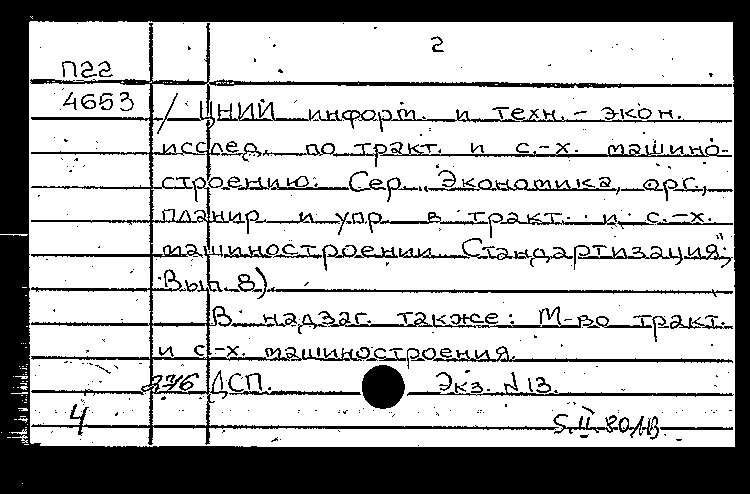 2
П22
4653
/ ЦНИИ информ. и техн. - экон.
исслед. по тракт. и с.-х. машино-
строению. Сер. „Экономика, орг.,
планир и упр в тракт. и с.-х.
машиностроении. Стандартизация";
Вып. 8).
В надзаг. также: М-во тракт.
и с.-х. машиностроения.
ДСП. Экз. N 13.
4
5.II.80